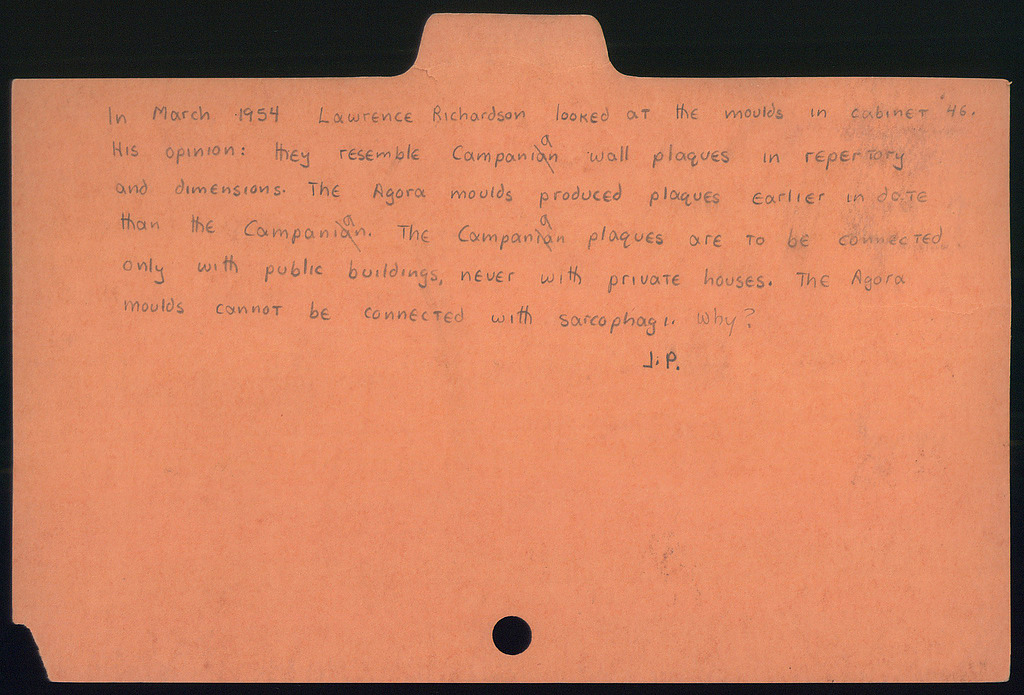 In March 1954 Lawrence Richardson looked at the moulds in cabinet 46.
His opinion: they resemble Campana wall plaques in repertory
and dimensions. The Agora moulds produced plaques earlier in date
than the Campana. The Campana plaques are to be connected
only with public buildings, never with private houses. The Agora
moulds cannot be connected with sarcophagi. Why?
J.P.